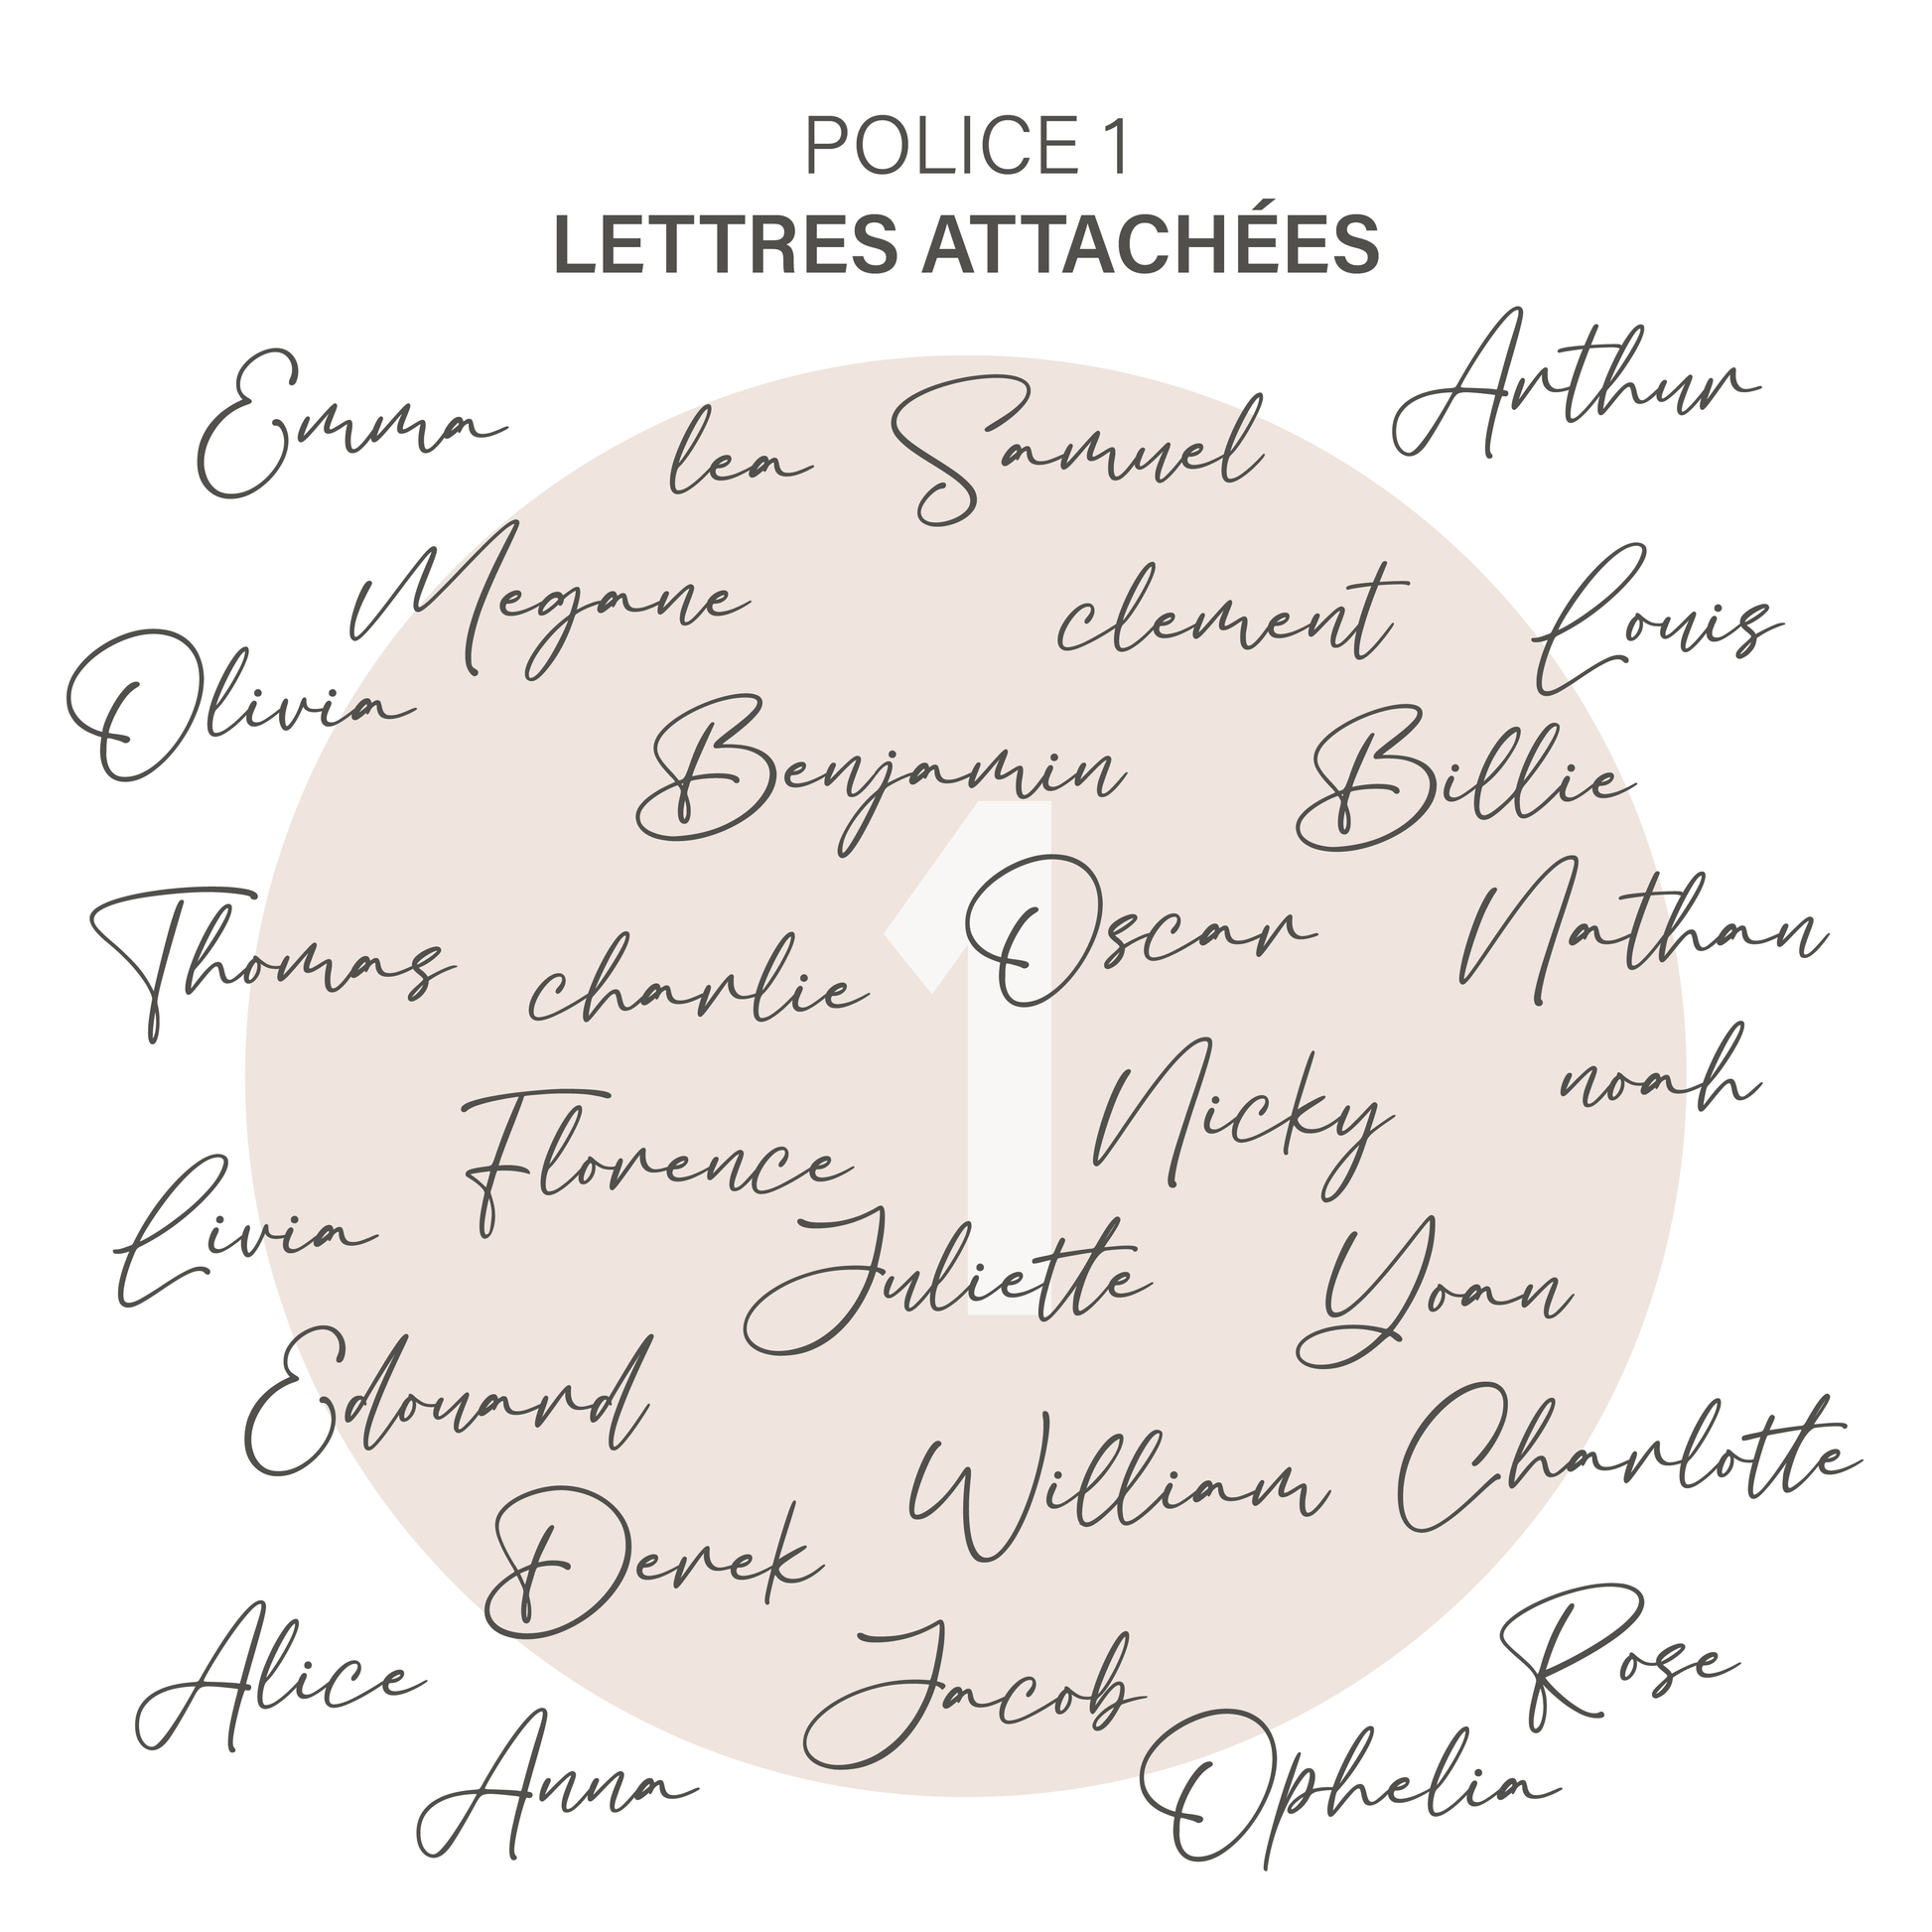 POLICE 1
LETTRES ATTACHÉES
Emma
lea
Samuel
Arthur
Megane
clement
Louis
Olivia
Benjamin
Billie
Thomas
charlie
Oscar
Nathan
noah
Florence
Nicky
Livia
Juliette
Yoan
Edouard
William
Charlotte
Derek
Alice
Jacob
Rose
Anna
Ophelia
1